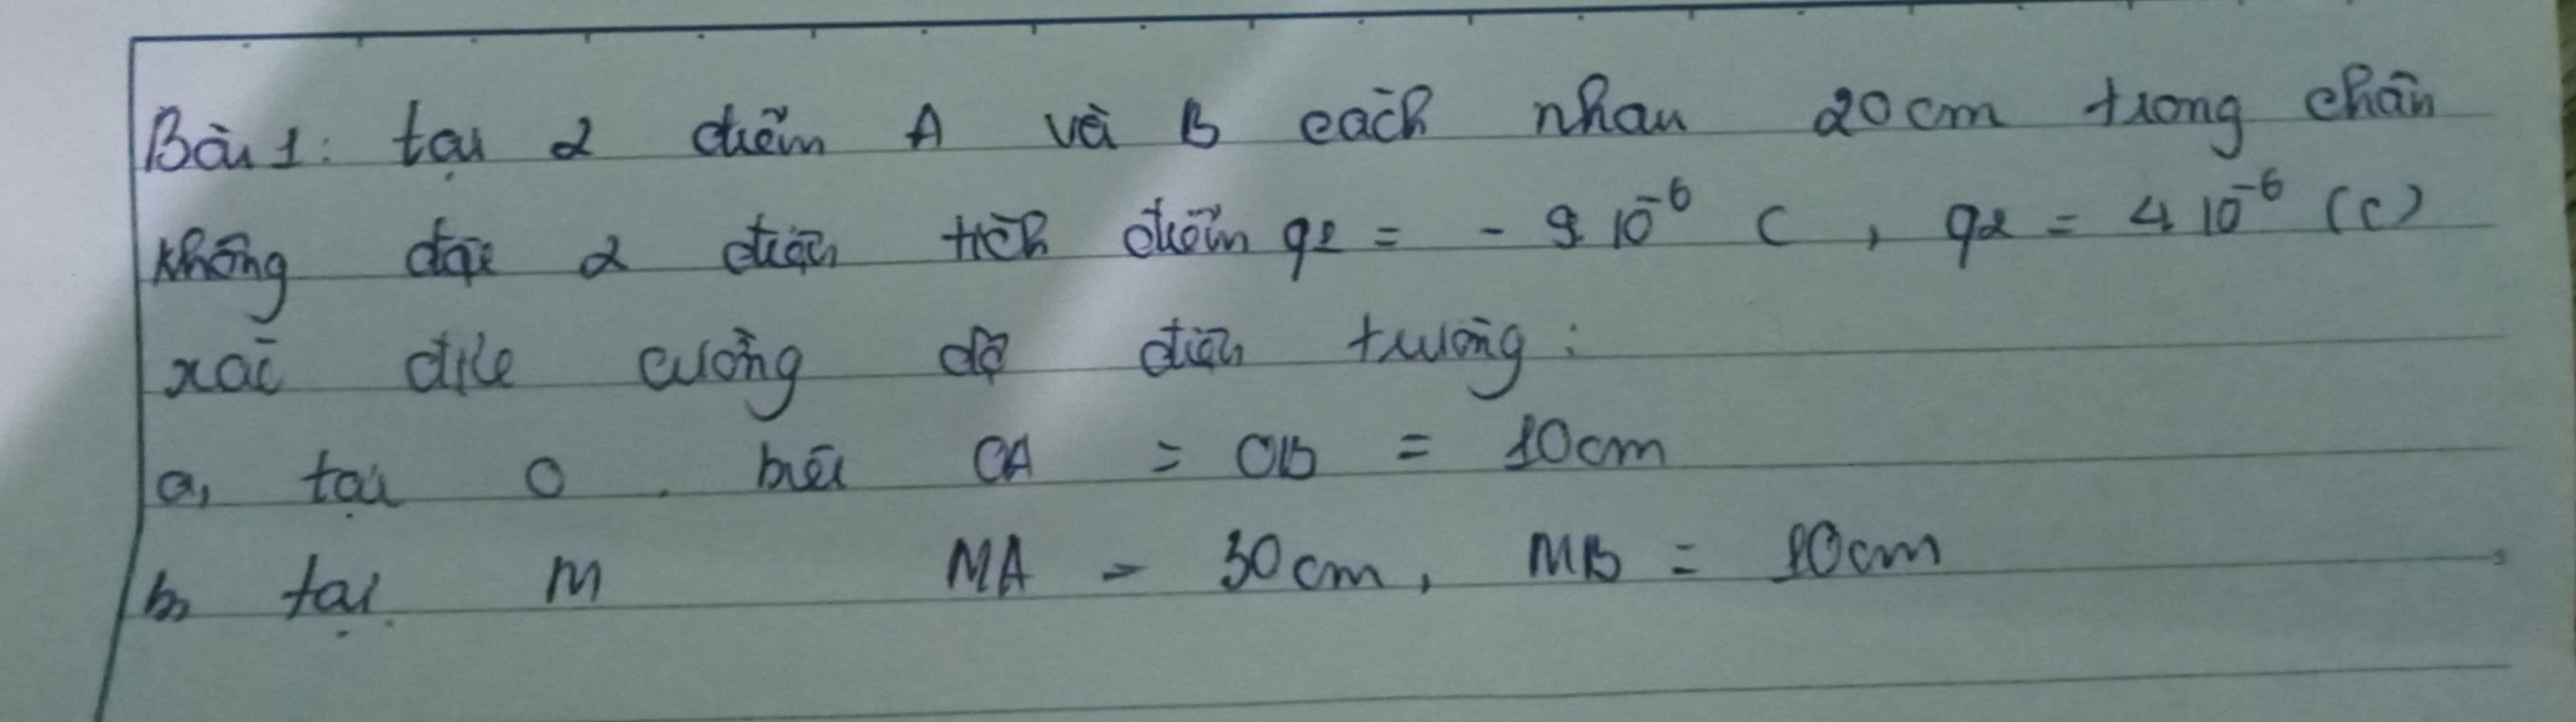 Bài 1: tại 2 điểm A và B cách nhau 20cm trong chân
không đặt 2 điện tích điểm q1 = - 9 10⁻⁶ C , q2 = 4 10⁻⁶ (C)
xác định cường độ điện trường :
a, tại O . biết OA = OB = 10cm
b, tại M MA = 30cm , MB = 10cm